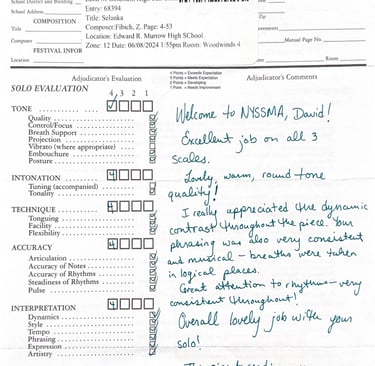 School District and Building
Entry: 68394
School Address
Title: Selanka
Zip
COMPOSITION
Composer: Fibich, Z. Page: 4-53
Title
Location: Edward R. Murrow High SChool
Manual Page No.
Composer
Zone: 12 Date: 06/08/2024 1:55pm Room: Woodwinds 4
FESTIVAL INFOR
Location
Room
Adjudicator's Evaluation
4 Points = Exceeds Expectation
3 Points = Meets Expectation
2 Points = Developing
1 Point = Needs Improvement
Adjudicator's Comments
SOLO EVALUATION
4 3 2 1
TONE
Quality
Control/Focus
Breath Support
Projection
Vibrato (where appropriate)
Embouchure
Posture
INTONATION 4
Tuning (accompanied)
Tonality
TECHNIQUE 4
Tonguing
Facility
Flexibility
ACCURACY 4
Articulation
Accuracy of Notes
Accuracy of Rhythms
Steadiness of Rhythms
Pulse
INTERPRETATION 4
Dynamics
Style
Tempo
Phrasing
Expression
Artistry
Welcome to NYSSMA, David!
Excellent job on all 3
scales.
Lovely, warm, round tone
quality!
I really appreciated the dynamic
contrast throughout the piece. Your
phrasing was also very consistent
and musical - breaths were taken
in logical places.
Great attention to rhythms - very
consistent throughout!
Overall lovely job with your
solo!